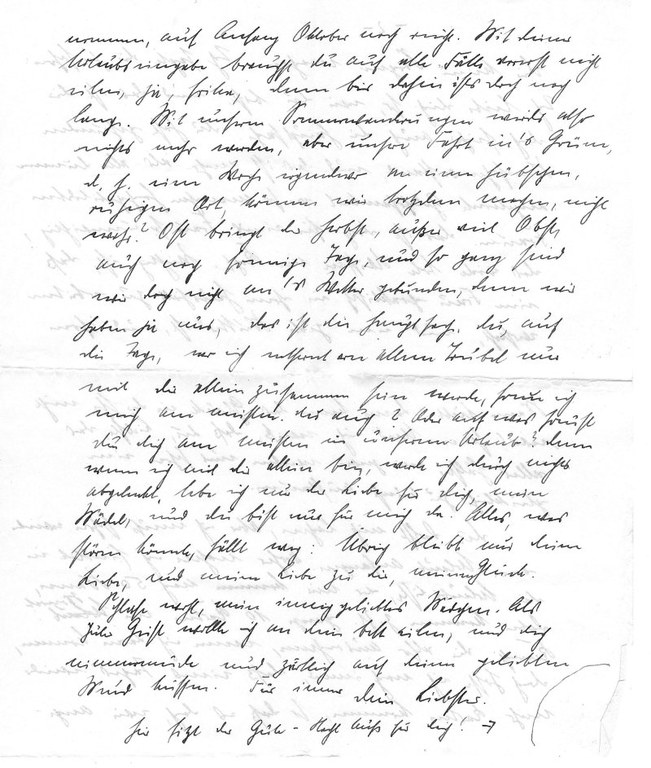 nommen, auf Anfang Oktober noch nicht. Mit deiner
Urlaubseingabe brauchst du auf alle Fälle vorerst nicht
eilen, ja, denn bis dahin ists doch noch
lange. Mit unseren Sommerwanderungen wirds also
nichts mehr werden, aber unsre Fahrt in's Grüne,
d. h. eine Woche irgendwo an einem hübschen,
ruhigen Ort, können wir trotzdem machen, nicht
wahr? Oft bringt der Herbst, außer viel Obst,
auch noch sonnige Tage, und so ganz sind
wir doch nicht an's Wetter gebunden, denn wir
haben ja uns, das ist die Hauptsache. du, auf
die Tage, wo ich entfernt von allem Trubel nur
mit dir allein zusammen sein werde, freue ich
mich am meisten. du auch? Oder auf was freust
du dich am meisten in unserem Urlaub? denn
wenn ich mit dir allein bin, werde ich durch nichts
abgelenkt, lebe ich nur der Liebe für dich, mein
Mädel, und du bist nur für mich da. Alles, was
stören könnte, fällt weg: Übrig bleibt nur deine
Liebe, und meine Liebe zu dir, mein Glück.
Schlafe wohl, mein inniggeliebtes. Als
guter Geist wollte ich an dein Bett eilen, und dich
nimmermüde und zärtlich auf deinen geliebten
Mund küssen. Für immer dein Liebster.
hier sitzt der Gute-Nacht Kuß für dich! →